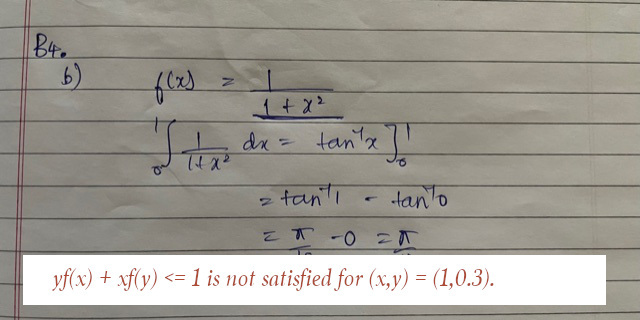 B4.
b) f(x) = 1/(1 + x²)
₀∫¹ 1/(1+x²) dx = tan⁻¹x ]₀¹
= tan⁻¹1 - tan⁻¹0
= π/ - 0 = π/
yf(x) + xf(y) <= 1 is not satisfied for (x,y) = (1,0.3).